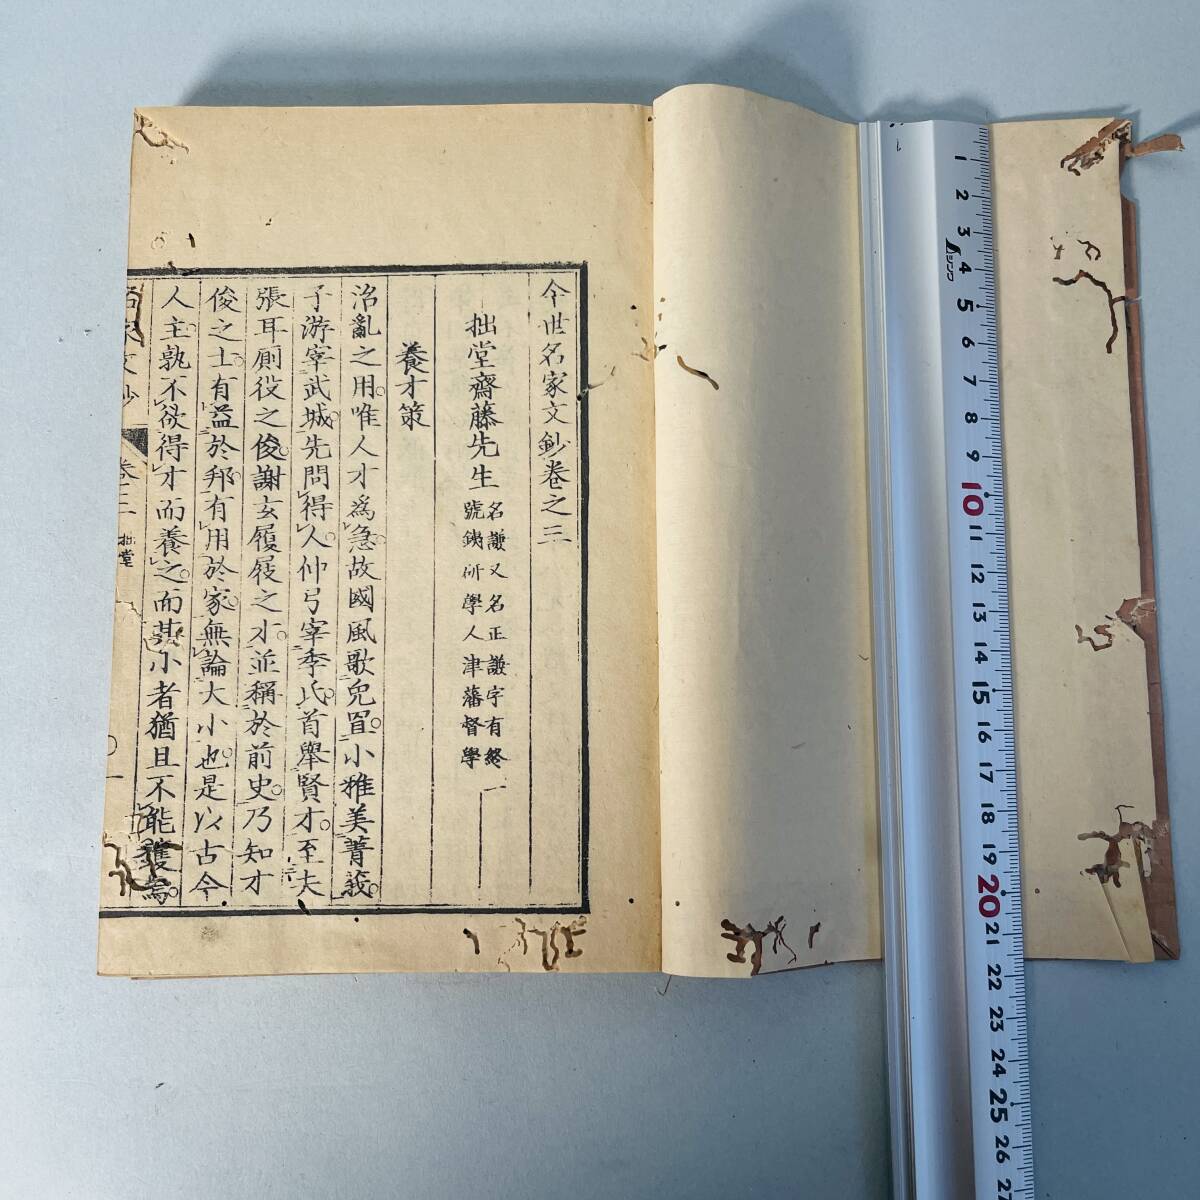 今世名家文鈔卷之三
拙堂齋藤先生 名謙又名正謙字有終一
號鐵研學人津藩督學
養才策
治亂之用。唯人才爲急。故國風歌兔罝。小雅美菁莪。
子游宰武城。先問得人。仲弓宰季氏。首舉賢才。至夫
張耳廝役之俊。謝玄履屐之才。並稱於前史。乃知才
俊之士。有益於邦。有用於家。無論大小也。是以古今
人主。孰不欲得才而養之。而其小者猶且不能獲焉。
名家文鈔 卷三 拙堂 〇一
シンワ
1
2
3
4
5
6
7
8
9
10
11
12
13
14
15
16
17
18
19
20
21
22
23
24
25
26
27